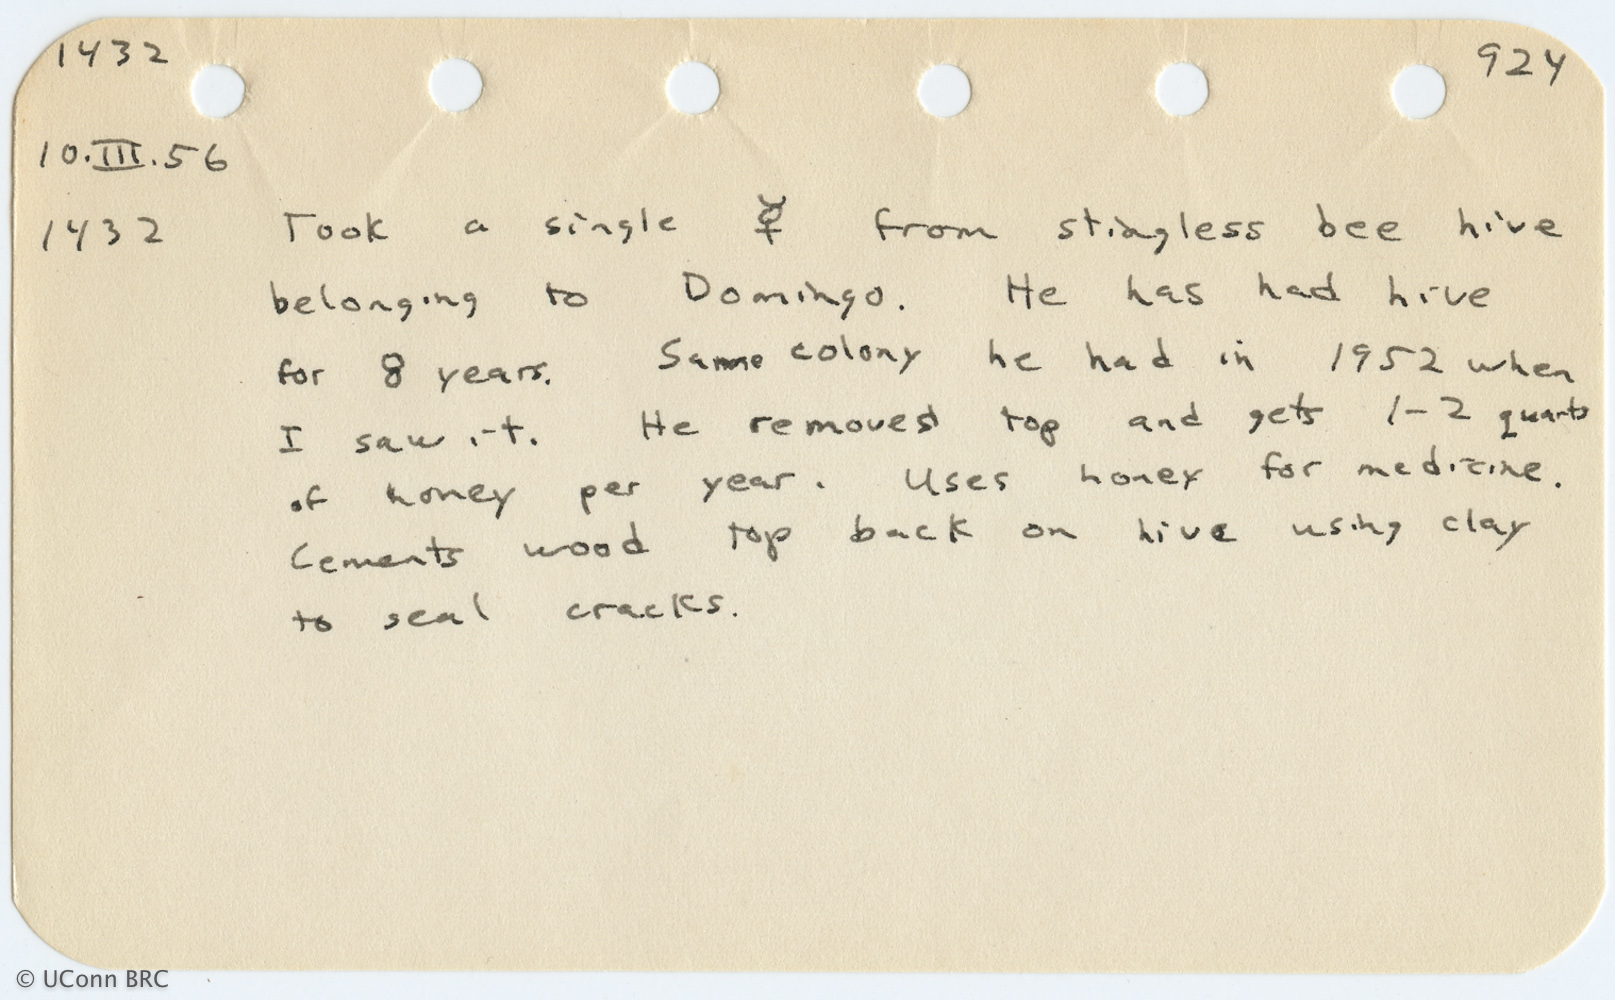 1432 924
10.III.56
1432 Took a single ☿ from stingless bee hive
belonging to Domingo. He has had hive
for 8 years. Same colony he had in 1952 when
I saw it. He removes top and gets 1-2 quarts
of honey per year. Uses honey for medicine.
Cements wood top back on hive using clay
to seal cracks.
© UConn BRC